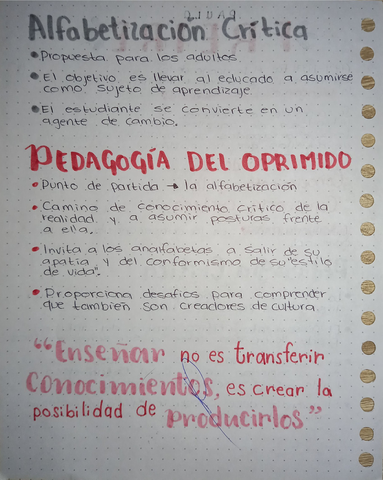 Alfabetización Crítica
• Propuesta para los adultos.
• El objetivo es llevar al educado a asumirse
como sujeto de aprendizaje.
• El estudiante se convierte en un
agente de cambio.
PEDAGOGÍA DEL OPRIMIDO
• Punto de partida → la alfabetización
• Camino de conocimiento crítico de la
realidad y a asumir posturas frente
a ella.
• Invita a los analfabetas a salir de su
apatía y del conformismo de su "estilo
de vida".
• Proporciona desafíos para comprender
que también son creadores de cultura.
"Enseñar no es transferir
conocimientos, es crear la
posibilidad de producirlos"